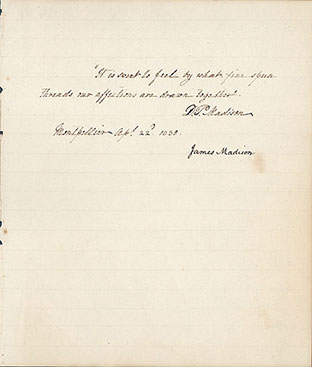 "It is sweet to feel by what fine spun
Threads our affections are drawn together"
D. P. Madison
Montpellier Apl. 22d 1830.
James Madison